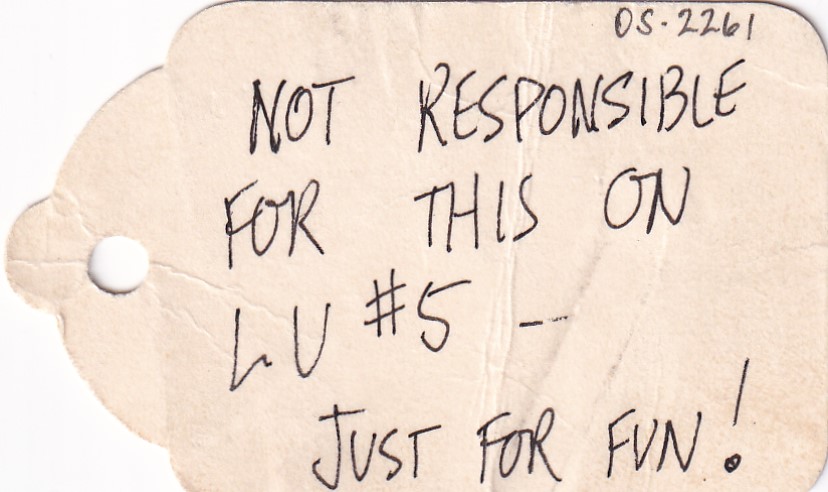 OS-2261
NOT RESPONSIBLE
FOR THIS ON
LU #5 —
JUST FOR FUN!